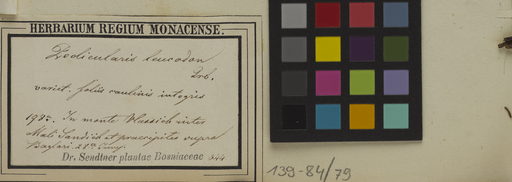 HERBARIUM REGIUM MONACENSE.
Pedicularis leucodon
Grb.
variet. foliis caulinis integris
In monte Vlassich inter
Mali et praecipites supra
21
Dr. Sendtner plantae Bosniaceae 544
139-84/79